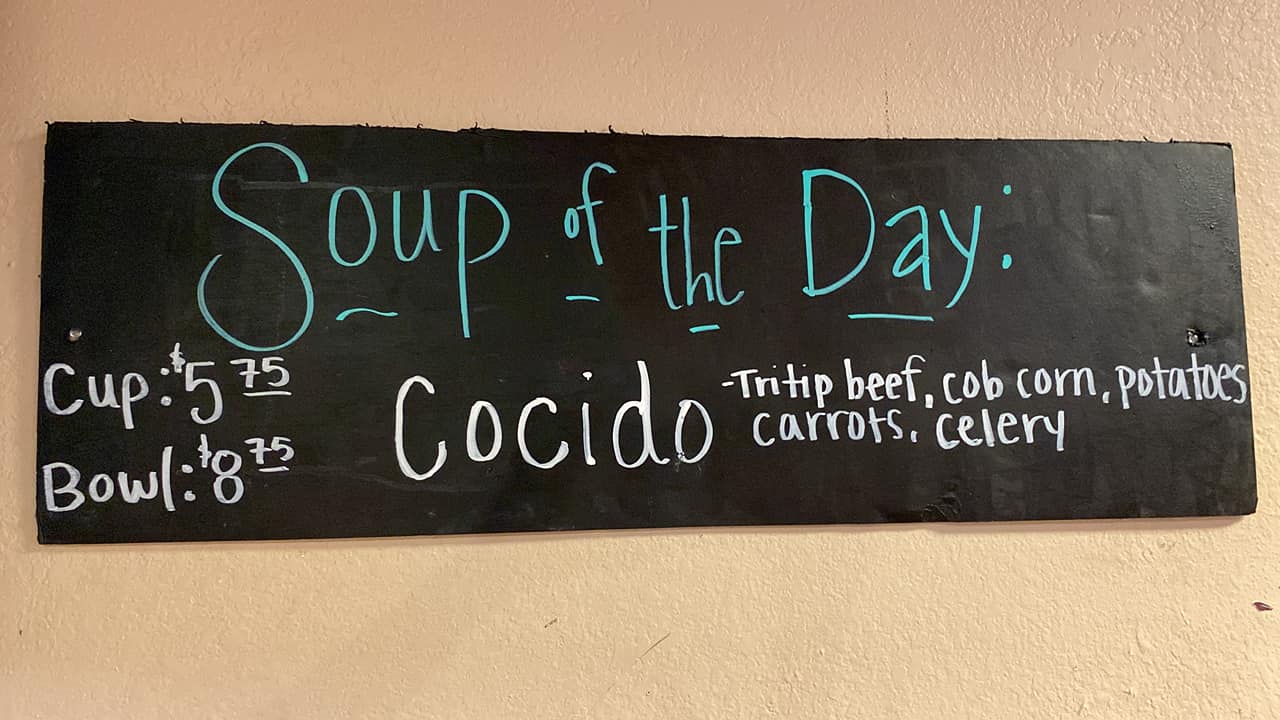 Soup of the Day:
Cup: $5 75
Bowl: $8 75
Cocido
-Tritip beef, cob corn, potatoes
carrots, celery